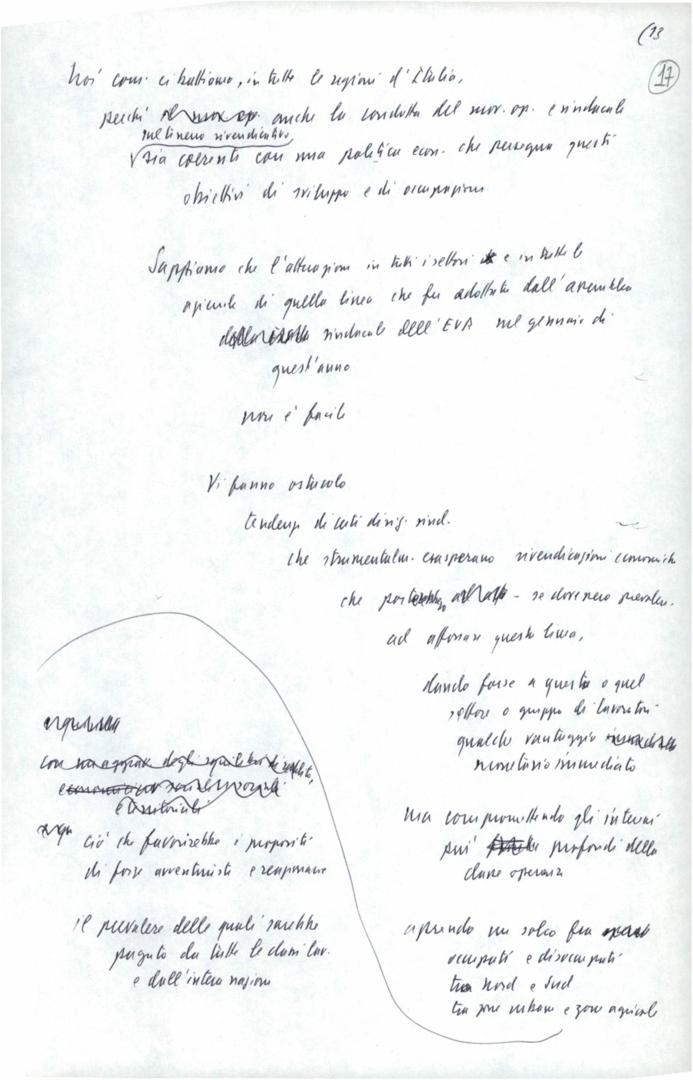 (13
17
Noi com. ci battiamo, in tutte le regioni d'Italia,
perché anche la condotta del mov. op. e sindacale
sul terreno rivendicativo,
sia coerente con una politica econ. che persegua questi
obiettivi di sviluppo e di occupazione
Sappiamo che l'attuazione in tutti i settori e in tutte le
aziende di quella linea che fu adottata dall'assemblea
sindacale dell'EUR nel gennaio di
quest'anno
non è facile
Vi fanno ostacolo
tendenze di certi dirig. sind.
che strumentalm. esasperano rivendicazioni economiche
che - se dovessero prevalere.
ad affossare questa linea,
dando forse a questo o quel
settore o gruppo di lavoratori
qualche vantaggio
monetario immediato
ma compromettendo gli interessi
più profondi della
classe operaia
aprendo un solco fra
occupati e disoccupati
tra Nord e Sud
tra zone urbane e zone agricole
con degli squilibri
e territoriali
ciò che favorirebbe i propositi
di forze avventuriste e reazionarie
il prevalere delle quali sarebbe
pagato da tutte le classi lav.
e dall'intera nazione